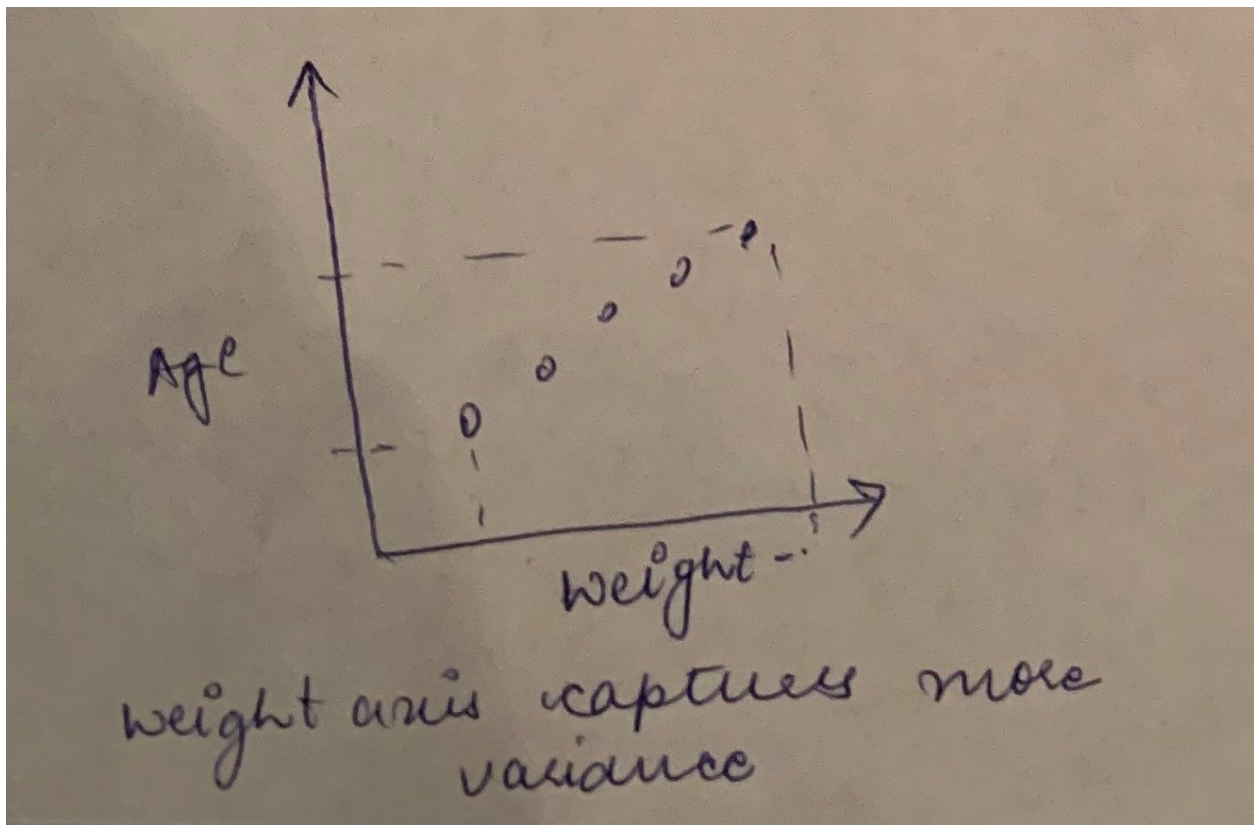 Age
Weight
weight axis captures more
variance